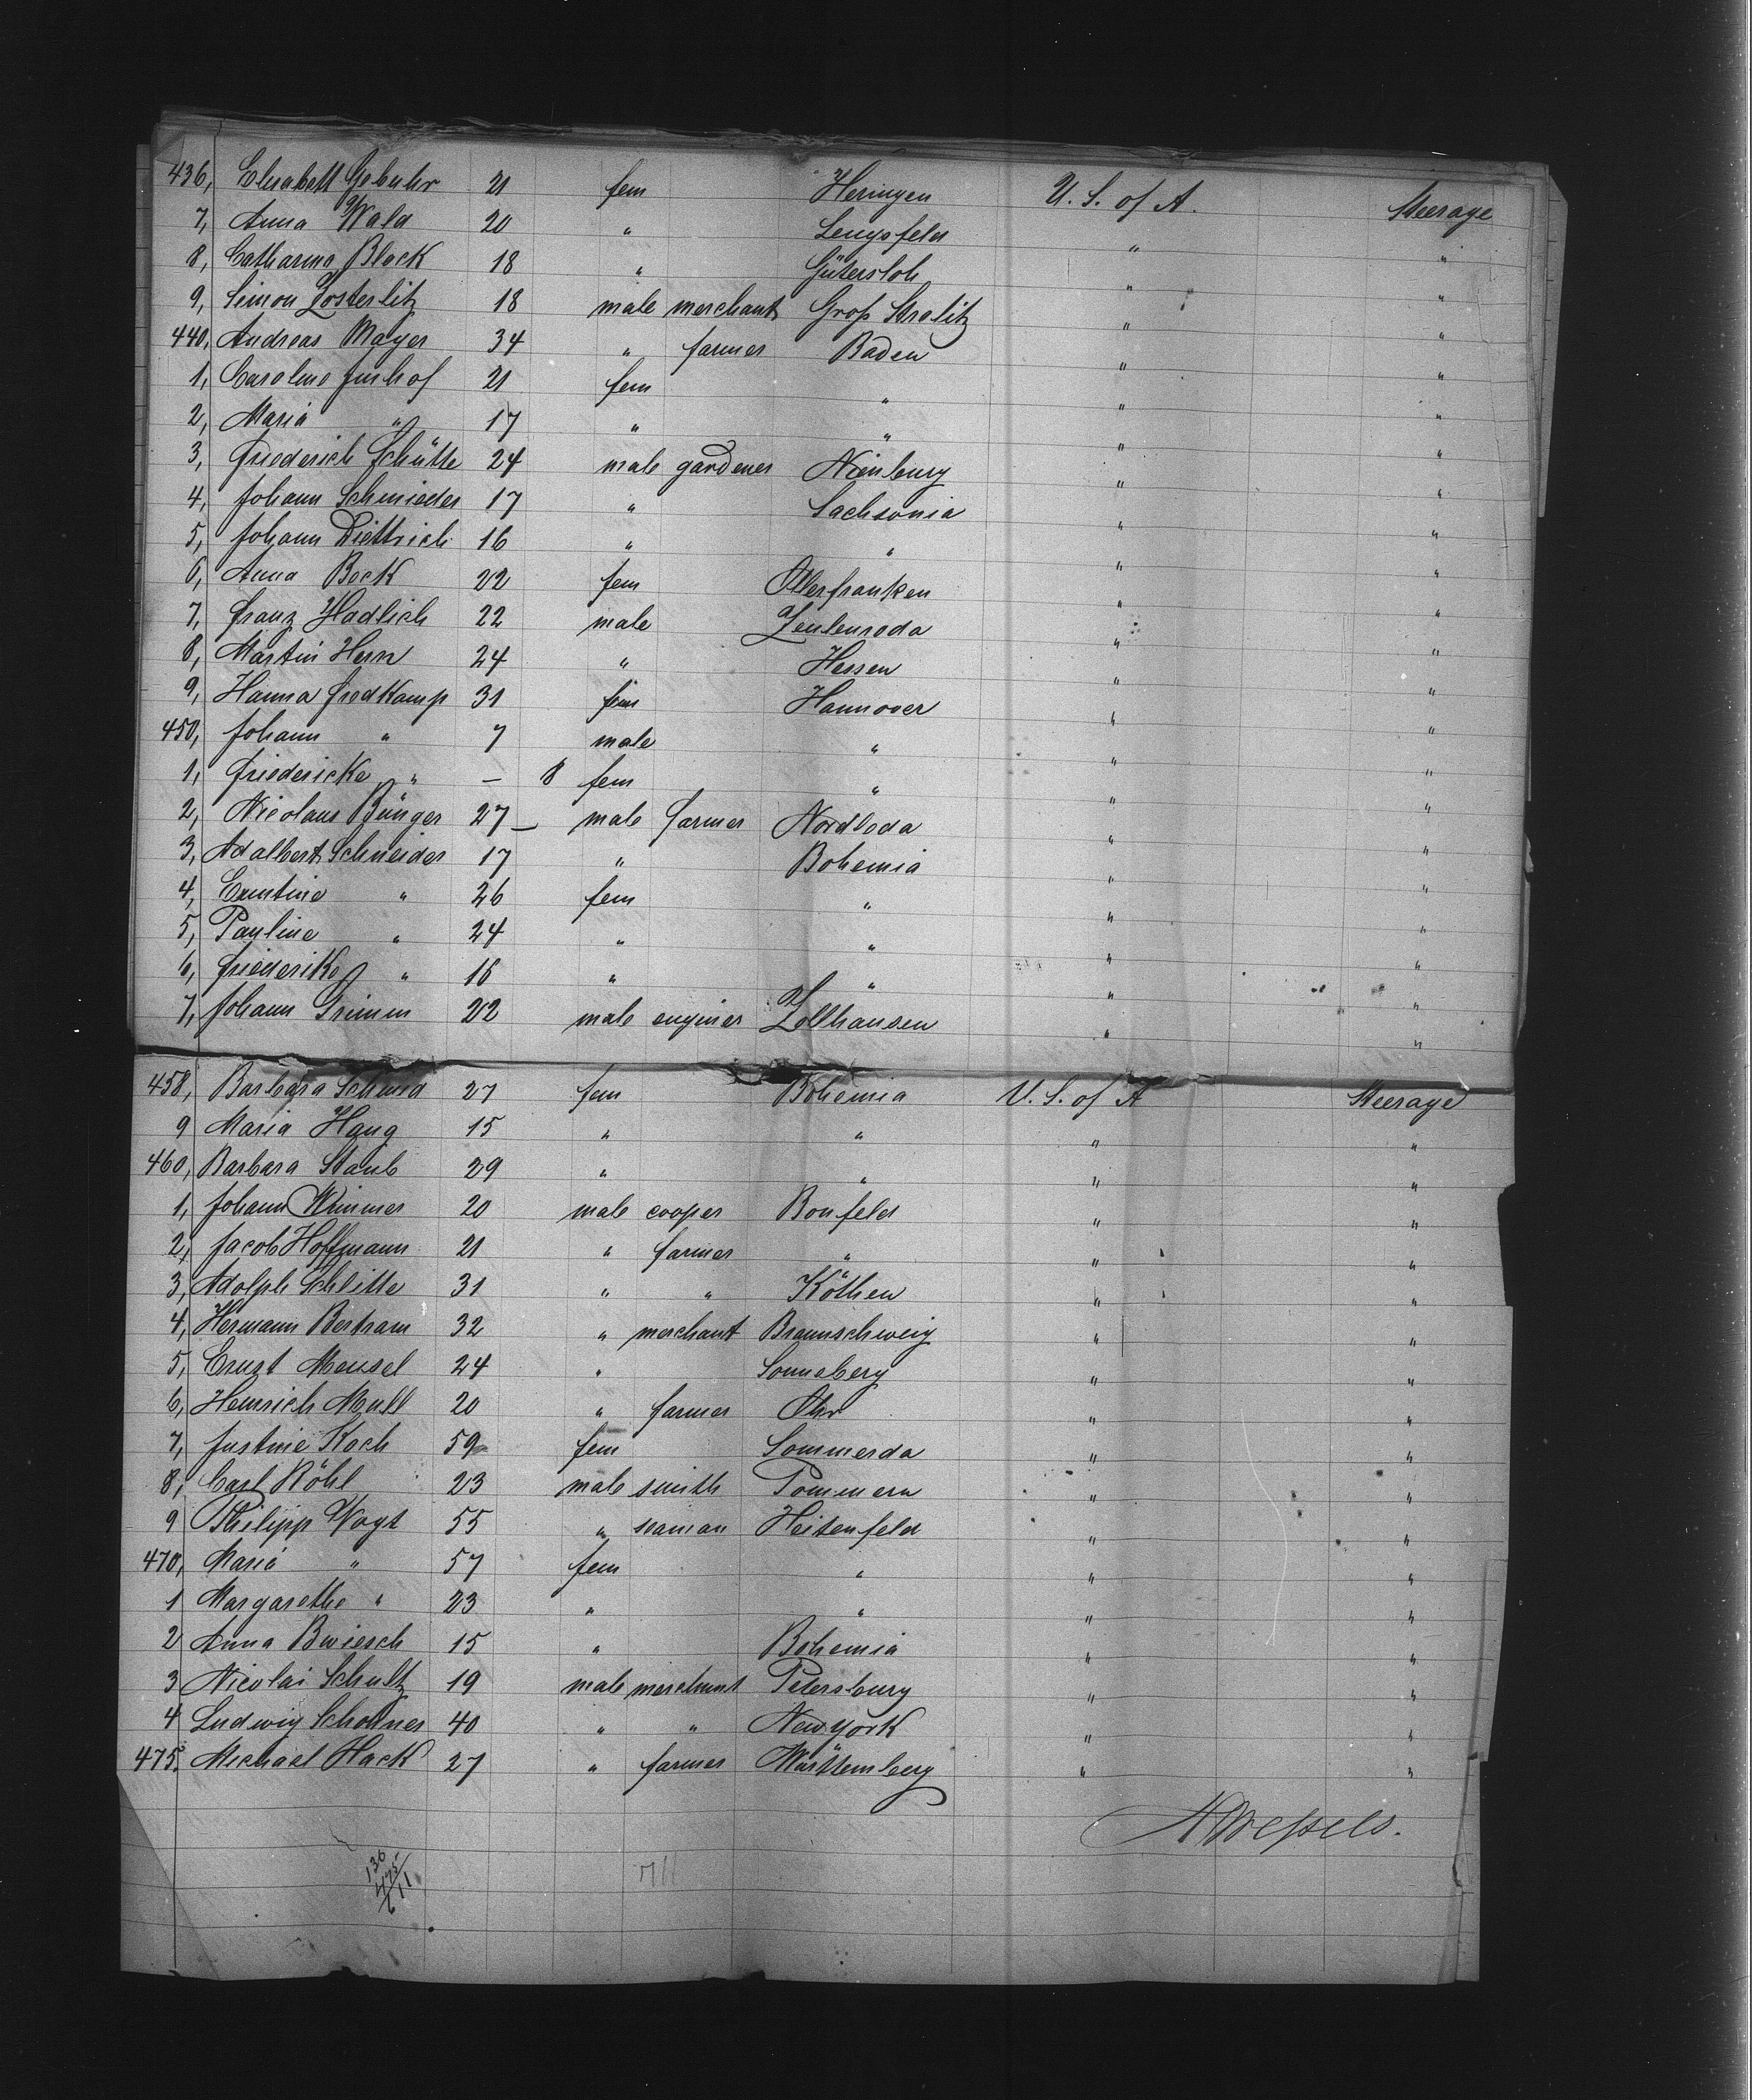 436, Elisabett Gebuhr 21 fem Heringen U. S. of A. Steerage
7, Anna Wald 20 " Lengsfeld " "
8, Catharina Block 18 " Gütersloh " "
9, Simon Zosterlitz 18 male merchant Groß Strelitz " "
440, Andreas Mayer 34 " farmer Baden " "
1, Caroline Imhof 21 fem " " "
2, Maria " 17 " " " "
3, Friederich Schütte 24 male gardener Nienburg " "
4, Johann Schmieder 17 " Sachsonia " "
5, Johann Diettrich 16 " " " "
6, Anna Bock 22 fem Oberfranken " "
7, Franz Hadlich 22 male Zeulenroda " "
8, Martin Hern 24 " Hessen " "
9, Hanna Fredkamp 31 fem Hannover " "
450, Johann " 7 male " " "
1, Friedericke " — 8 fem " " "
2, Nicolaus Bünger 27 — male farmer Nordleda " "
3, Adalbert Schneider 17 " Bohemia " "
4, " 26 fem " " "
5, Pauline " 24 " " " "
6, Friederike " 16 " " " "
7, Johann Grimm 22 male enginer Zollhausen " "
458, Barbara Schmid 27 fem Bohemia U. S. of A Steerage
9 Maria Haug 15 " " " "
460, Barbara Staub 29 " " " "
1, Johann Wimmer 20 male cooper Bonfeld " "
2, Jacob Hoffmann 21 " farmer " " "
3, Adolph Schlitte 31 " " Köthen " "
4, Hermann Bertram 32 " merchant Braunschweig " "
5, Ernst Meusel 24 " Sonneberg " "
6, Heinrich Mull 20 " farmer Ohr " "
7, Justine Koch 59 fem Sommerda " "
8, Carl Röhl 23 male smith Pommern " "
9 Philipp Vogt 55 " seaman Heitenfeld " "
470, Maria " 57 fem " " "
1 Margarethe " 23 " " " "
2 Anna Bwiesch 15 " Bohemia " "
3 Nicolai Schultz 19 male merchant Petersburg " "
4 Ludwig Schonner 40 " " New York " "
475, Michael Hack 27 " farmer Württemberg " "
HWessels.
136
475
611
711